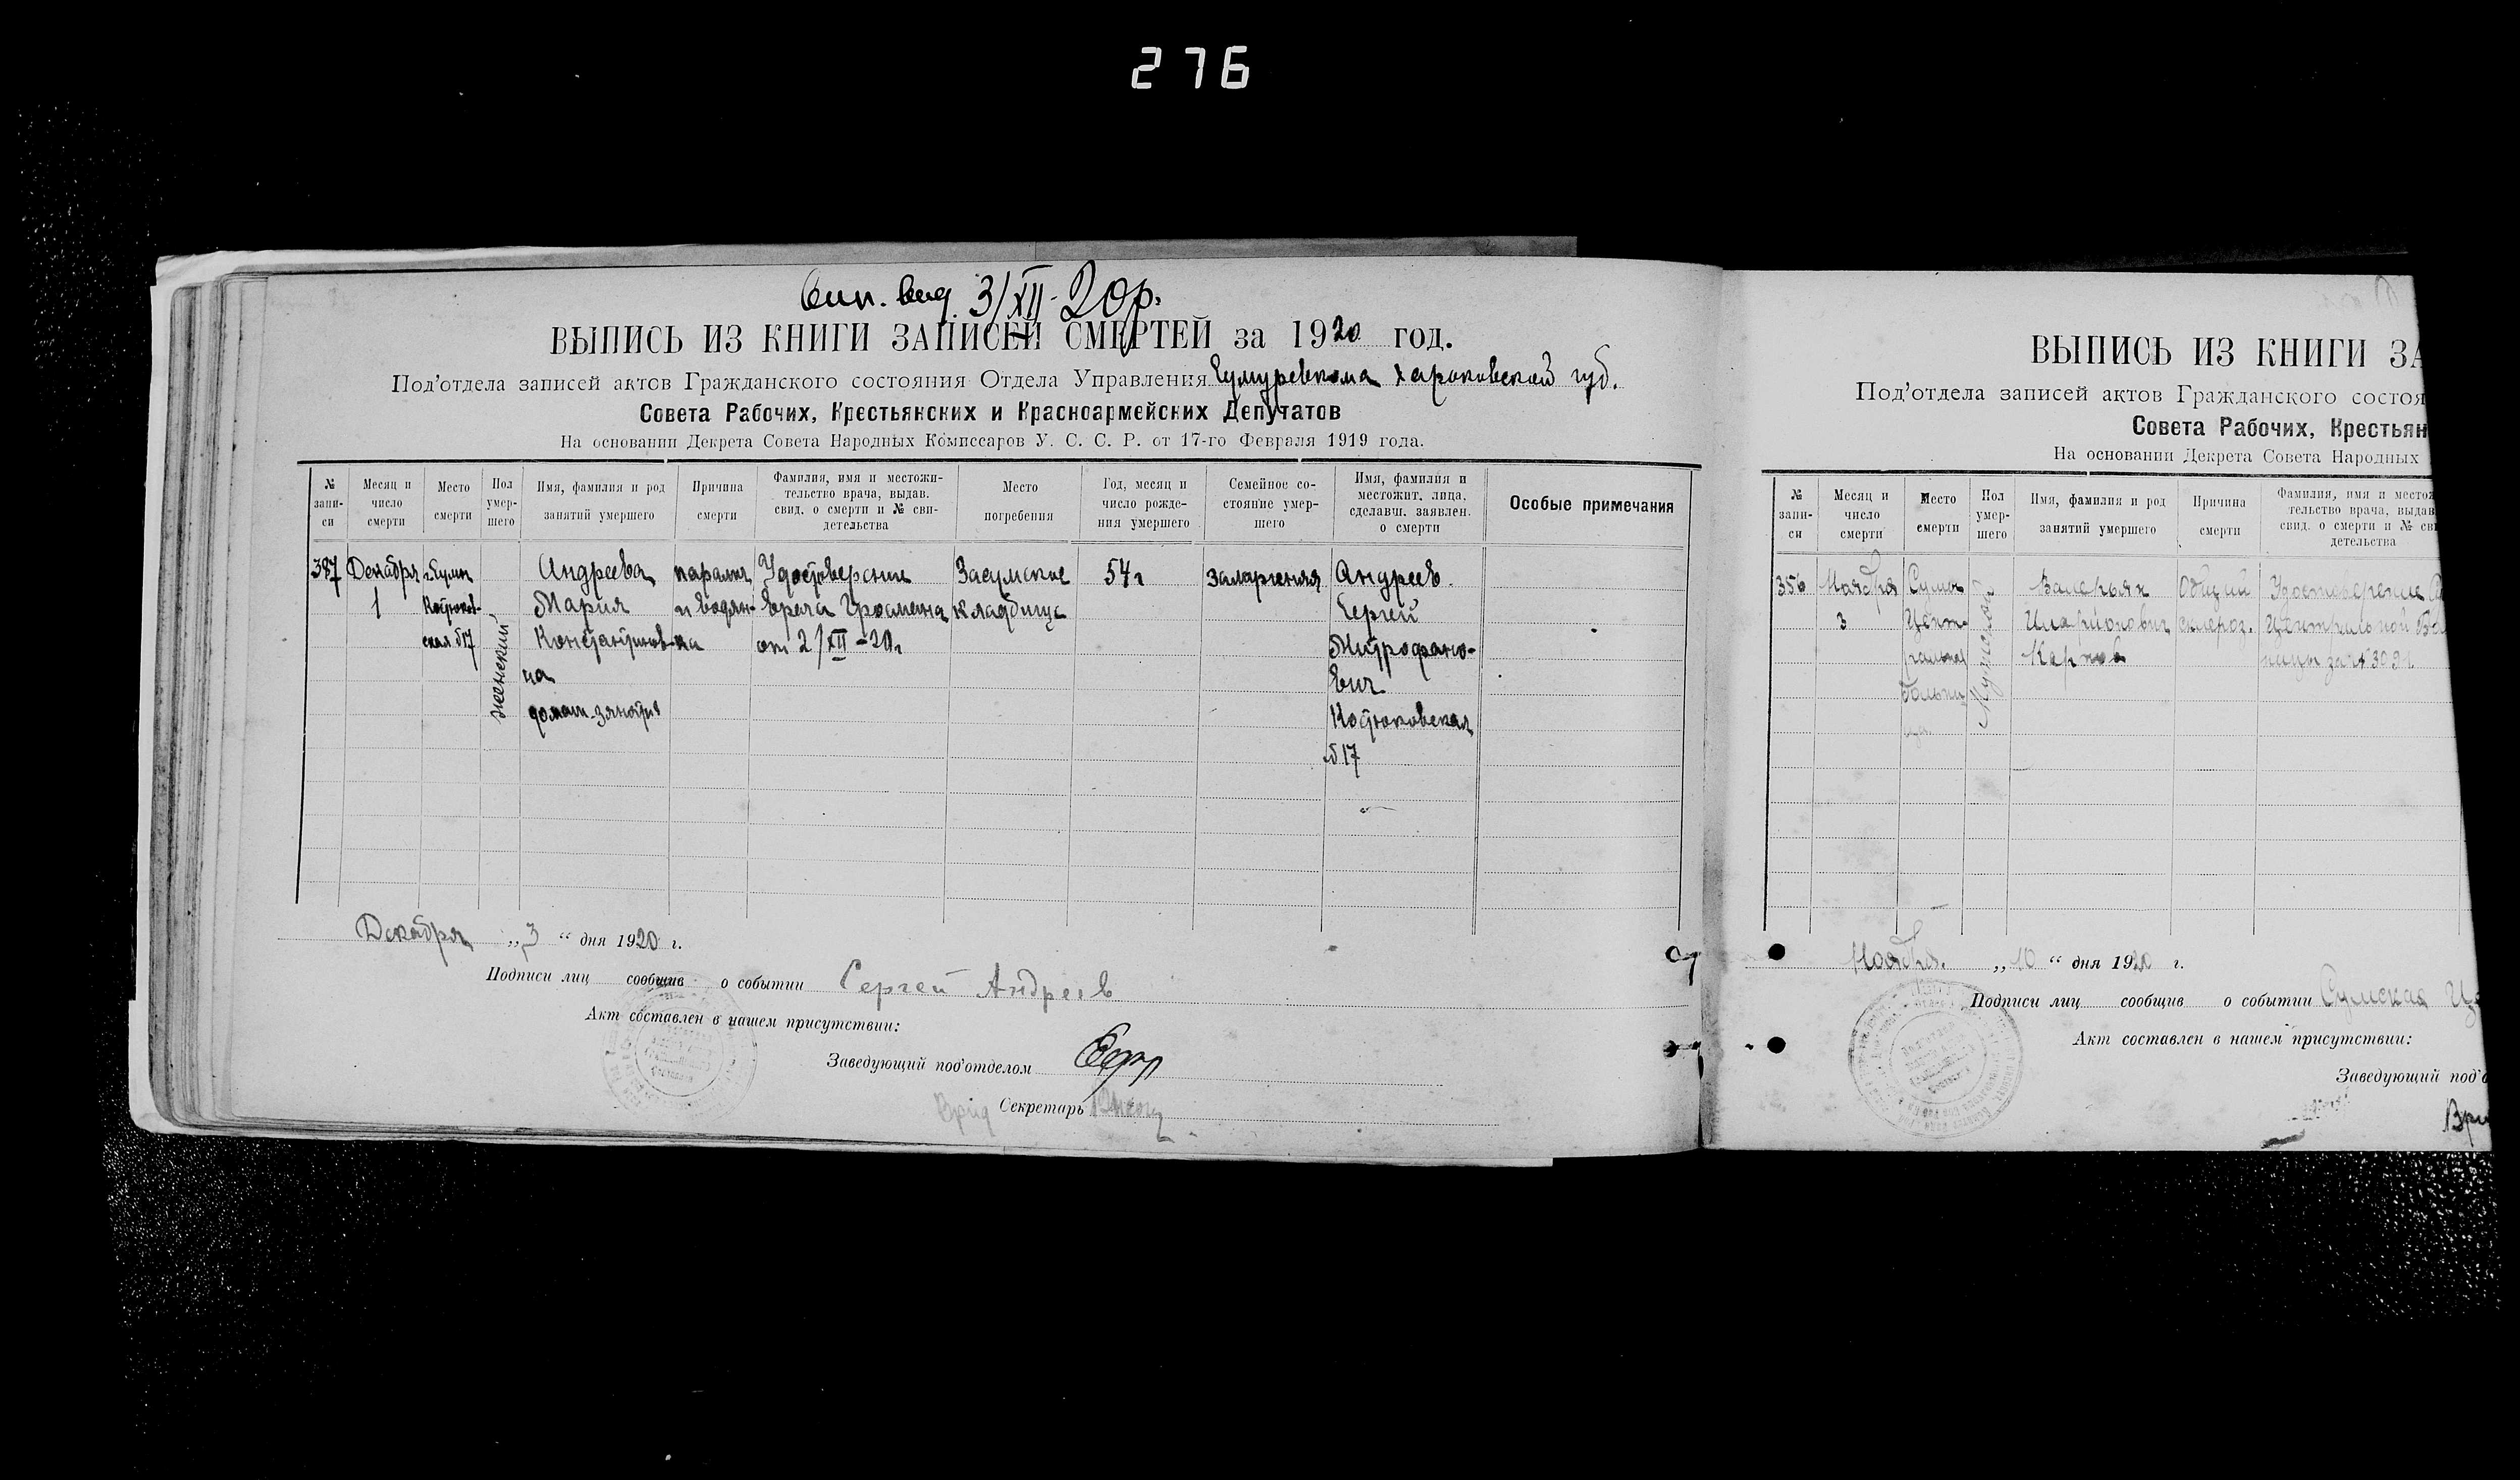 276
вип. вид. 3/XII-20р.
ВЫПИСЬ ИЗ КНИГИ ЗАПИСЕЙ СМЕРТЕЙ за 1920 год.
Под'отдела записей актов Гражданского состояния Отдела Управления Сумуревкома Харьковской губ.
Совета Рабочих, Крестьянских и Красноармейских Депутатов
На основании Декрета Совета Народных Комиссаров У. С. С. Р. от 17-го Февраля 1919 года.
№ записи
Месяц и число смерти
Место смерти
Пол умершего
Имя, фамилия и род занятий умершего
Причина смерти
Фамилия, имя и местожительство врача, выдав. свид. о смерти и № свидетельства
Место погребения
Год, месяц и число рождения умершего
Семейное состояние умершего
Имя, фамилия и местожит. лица, сделавш. заявлен. о смерти
Особые примечания
387
Декабря
1
г. Сумы
Костюков-
ская
17
женский
Андреева
Мария
Константинов-
на
домаш. занятия
паралич
и водян-
ка
Удостоверение
врача Громана
от 2/XII-20г
Засумское
кладбище
54 г
замужняя
Андреев
Сергей
Митрофано-
вич
Костюковская
17
Декабря „3“ дня 1920 г.
Подписи лиц сообщив о событии Сергей Андреев
Акт составлен в нашем присутствии:
Заведующий под'отделом
Врид Секретарь
ВЫПИСЬ ИЗ КНИГИ ЗА
Под'отдела записей актов Гражданского состоя
Совета Рабочих, Крестьян
На основании Декрета Совета Народных
№ записи
Месяц и число смерти
Место смерти
Пол умершего
Имя, фамилия и род занятий умершего
Причина смерти
Фамилия, имя и местож
тельство врача, выдав
свид. о смерти и № сви
детельства
356
Ноября
3
Сумы
Цент-
ральная
больни-
ца
Мужской
Валерьян
Иларионович
Карпов
Общий
склероз.
Удостоверение
Центральной
ницы за № 3091
Ноября „10“ дня 1920 г.
Подписи лиц сообщив о событии Сумская
Акт составлен в нашем присутствии:
Заведующий под'о
Ври